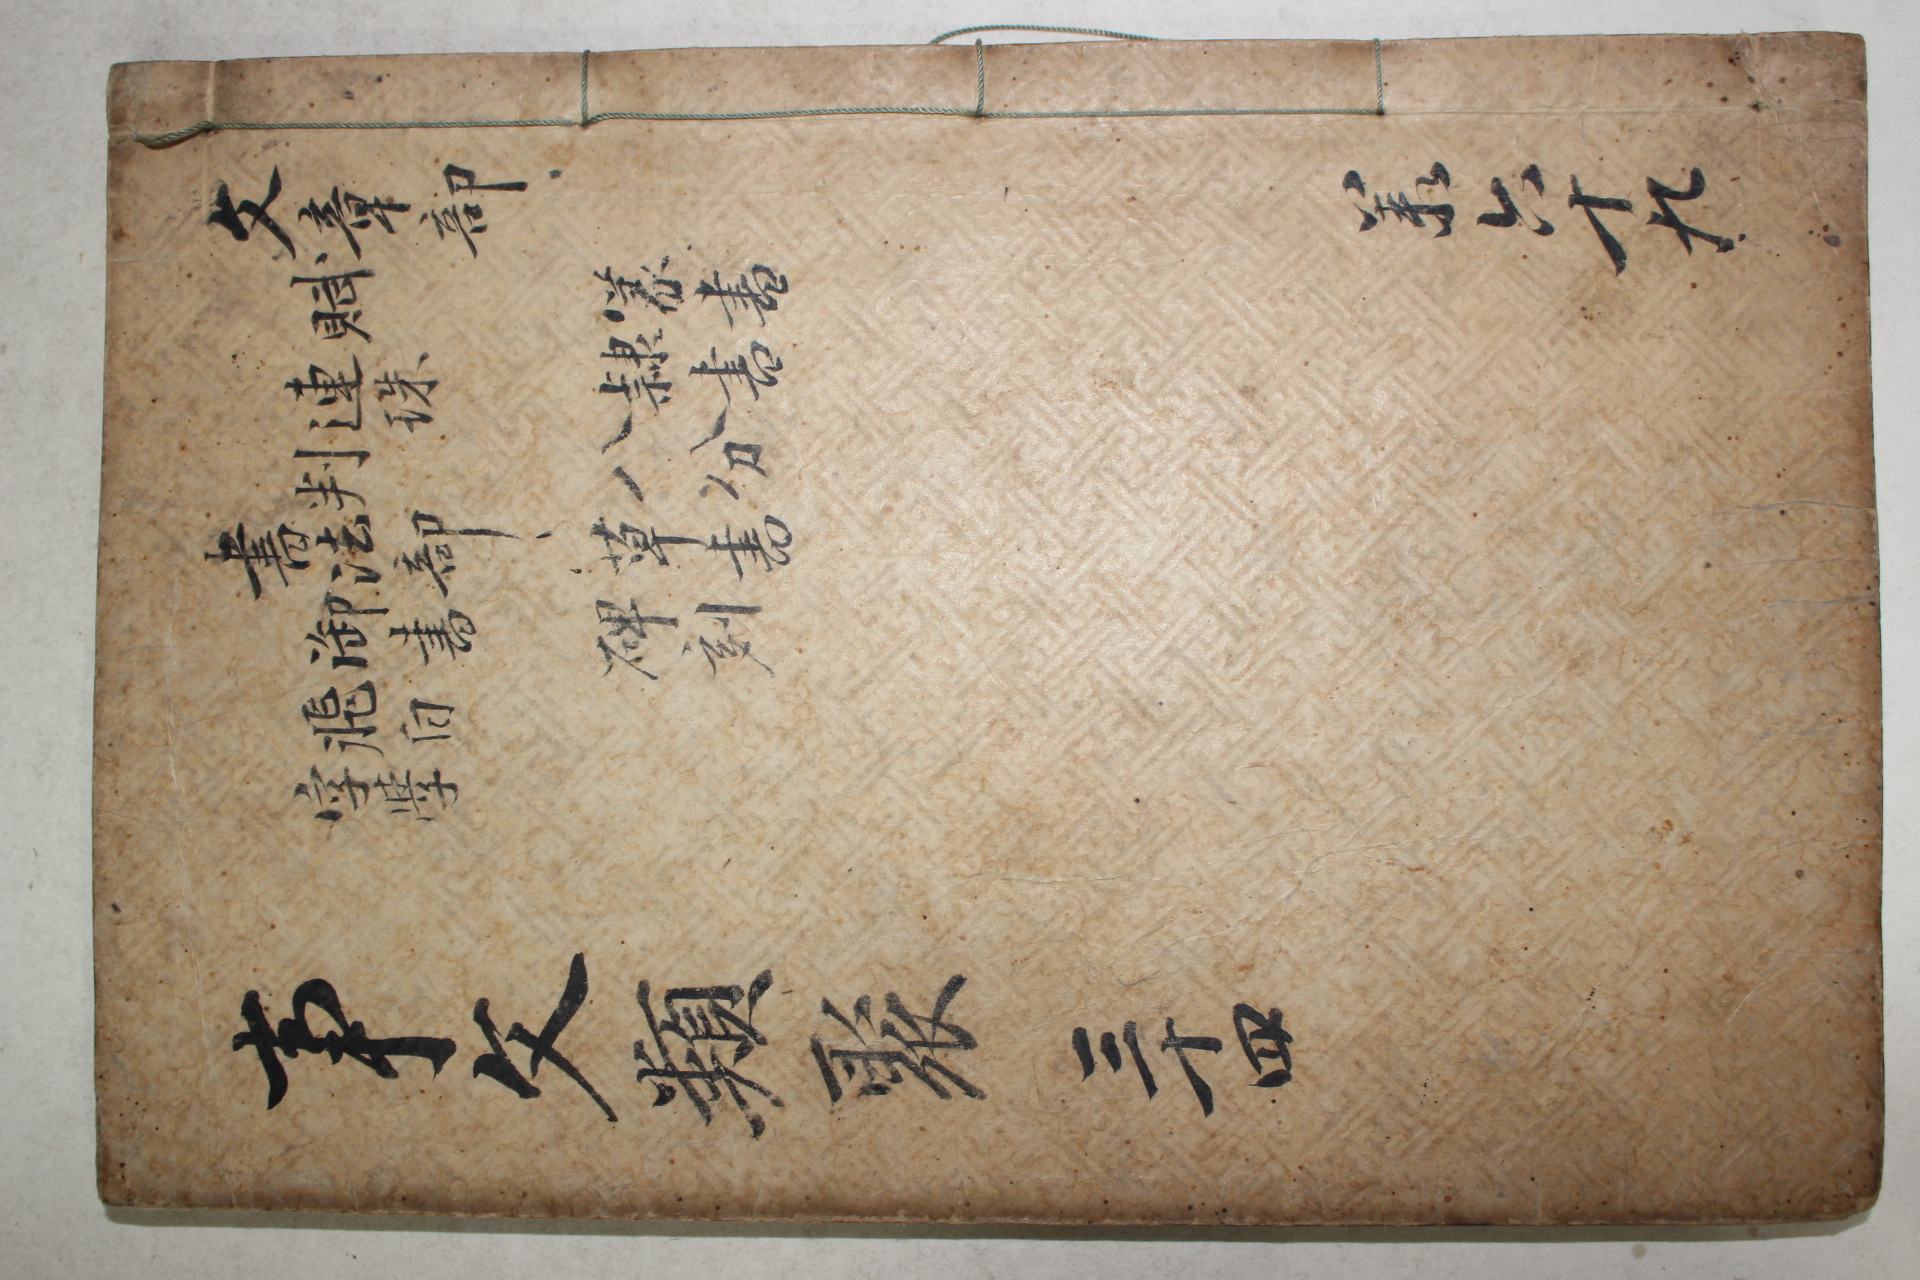 文章部
賦
連珠
判
書法部
御書
飛白
字學
篆書
隷書
八分
草書
碑刻
事文類聚 三十四
共六十九